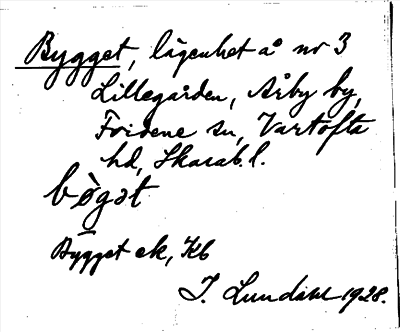 Bygget, lägenhet å nr 3
Lillegården, Åby by,
Fridene sn, Vartofta
hd, Skarab. l.
bògət
Bygget ek, Kb
I. Lundahl 1928.